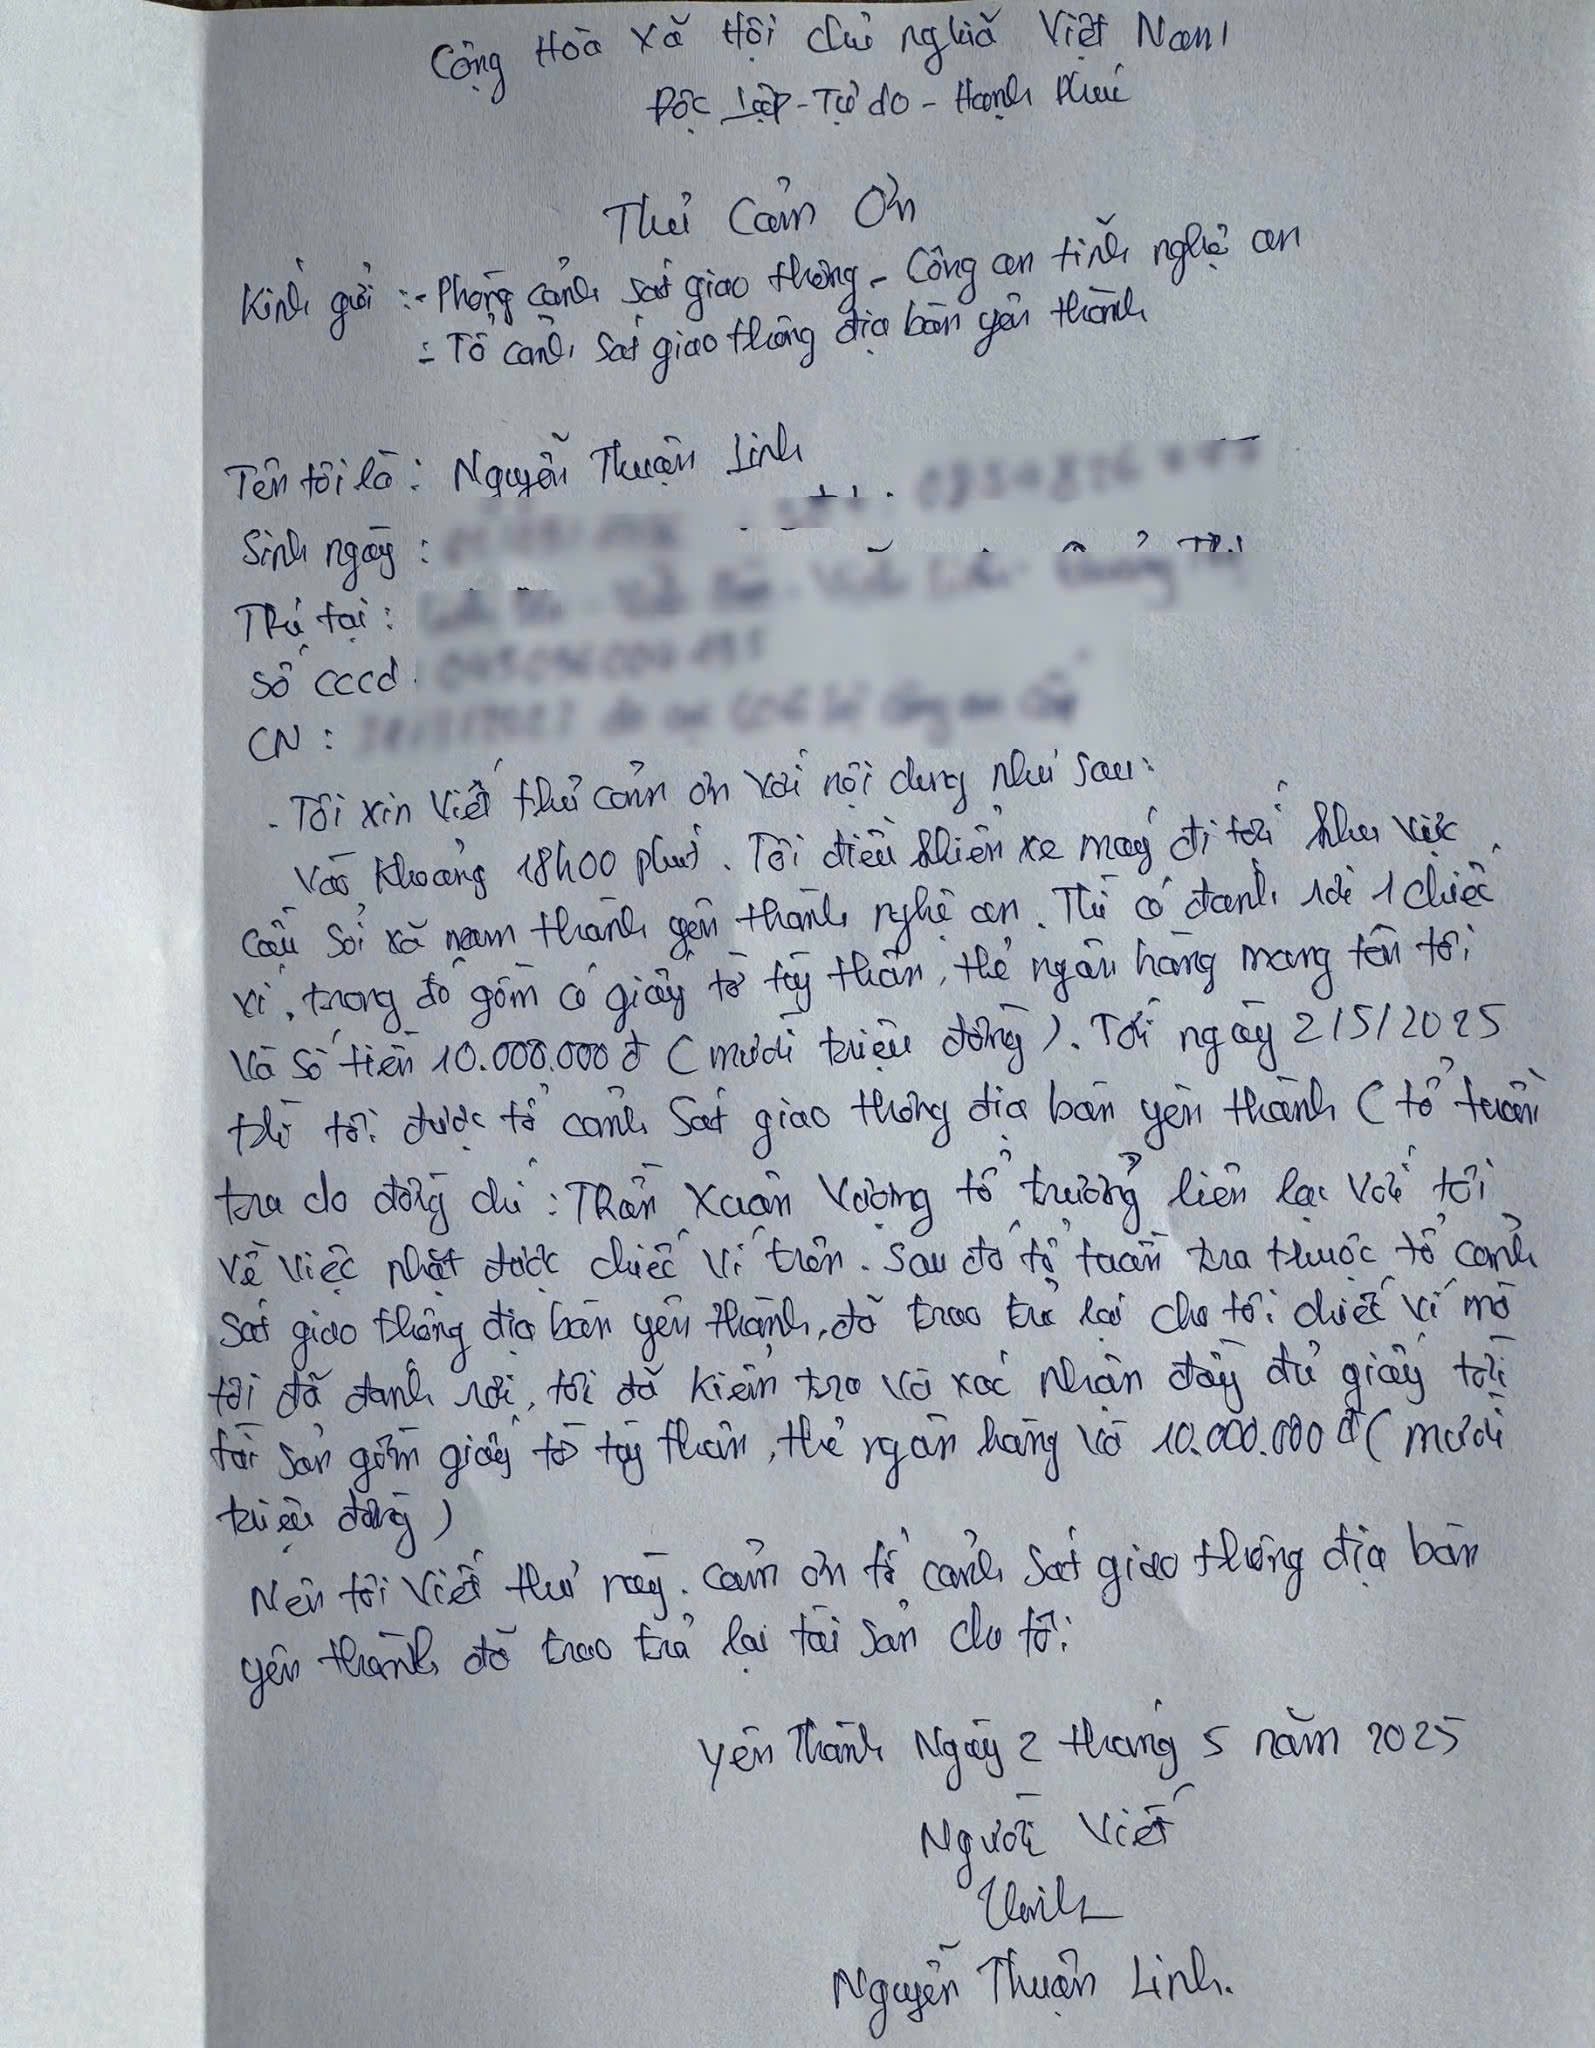 Cộng Hoà Xã Hội Chủ nghĩa Việt Nam
Độc Lập - Tự do - Hạnh Phúc
Thư Cảm Ơn
Kính gửi :- Phòng cảnh sát giao thông - Công an tỉnh nghệ an
- Tổ cảnh sát giao thông địa bàn yên thành
Tên tôi là : Nguyễn Thuận Linh
Sinh ngày :
Trú tại :
Số cccd
CN :
- Tôi xin viết thư cảm ơn với nội dung như sau:
Vào khoảng 18h00 phút. Tôi điều khiển xe máy đi tới khu vực
cầu sỏi xã nam thành yên thành nghệ an. Thì có đánh rơi 1 chiếc
ví, trong đó gồm có giấy tờ tùy thân, thẻ ngân hàng mang tên tôi
và số tiền 10.000.000 đ (mười triệu đồng). Tới ngày 2/5/2025
thì tôi được tổ cảnh sát giao thông địa bàn yên thành (tổ tuần
tra do đồng chí : Trần Xuân Vượng tổ trưởng liên lạc với tôi
về việc nhặt được chiếc ví trên. Sau đó tổ tuần tra thuộc tổ cảnh
sát giao thông địa bàn yên thành, đã trao trả lại cho tôi chiếc ví mà
tôi đã đánh rơi, tôi đã kiểm tra và xác nhận đầy đủ giấy tờ
tài sản gồm giấy tờ tùy thân, thẻ ngân hàng và 10.000.000 đ (mười
triệu đồng)
Nên tôi viết thư này. cảm ơn tổ cảnh sát giao thông địa bàn
yên thành đã trao trả lại tài sản cho tôi
Yên Thành Ngày 2 tháng 5 năm 2025
Người Viết
Linh
Nguyễn Thuận Linh.